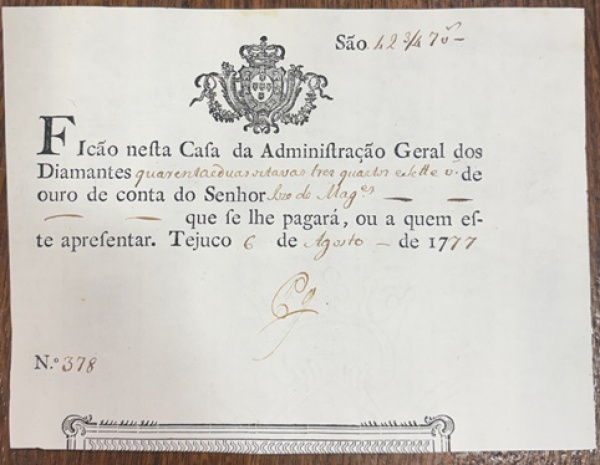 São 42 3/4 7 v.
FIcão neſta Caſa da Adminiſtração Geral dos
Diamantes quarenta e duas oitavas tres quartos e sette v. de
ouro de conta do Senhor de Mag.es
que ſe lhe pagará, ou a quem eſ-
te apreſentar. Tejuco 6 de Agosto de 1777
N.º 378